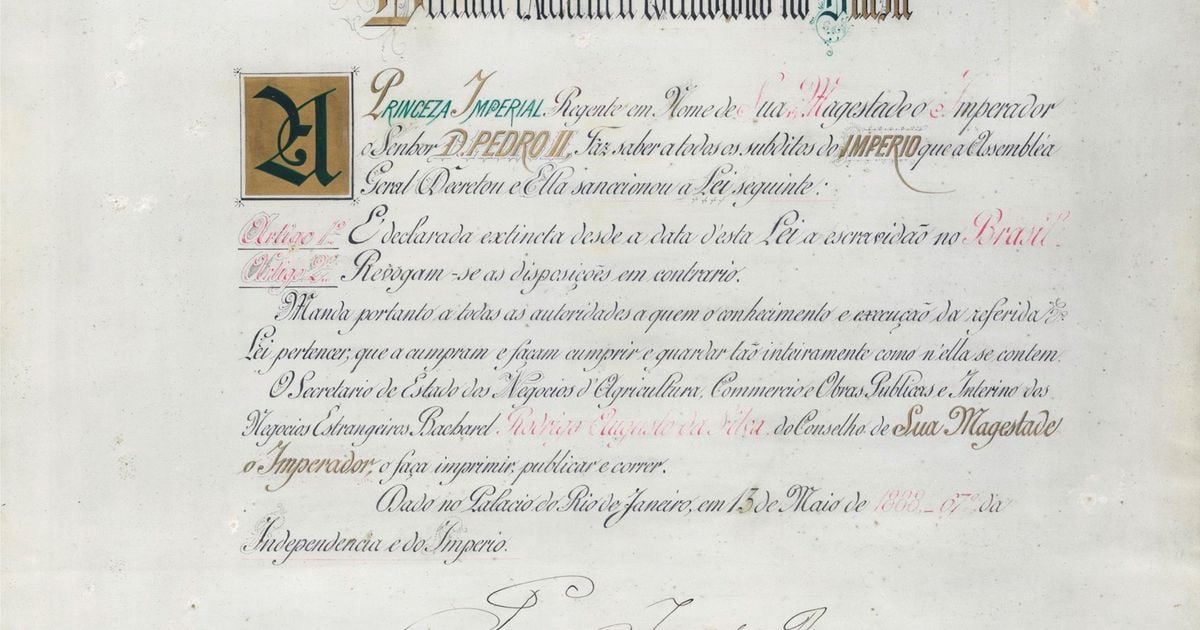 Declara extincta a escravidão no Brasil
A PRINCEZA IMPERIAL Regente em Nome de Sua Magestade o Imperador
o Senhor D. PEDRO II, Faz saber a todos os subditos do IMPERIO que a Assembléa
Geral Decretou e Ella sanccionou a Lei seguinte:
Artigo 1º É declarada extincta desde a data d'esta Lei a escravidão no Brasil.
Artigo 2º Revogam-se as disposições em contrario.
Manda portanto a todas as autoridades a quem o conhecimento e execução da referida
Lei pertencer, que a cumpram e façam cumprir e guardar tão inteiramente como n'ella se contem.
O Secretario de Estado dos Negocios d'Agricultura, Commercio e Obras Publicas e Interino dos
Negocios Estrangeiros Bacharel Rodrigo Augusto da Silva, do Conselho de Sua Magestade
o Imperador, o faça imprimir, publicar e correr.
Dado no Palacio do Rio de Janeiro, em 13 de Maio de 1888_67º da
Independencia e do Imperio.